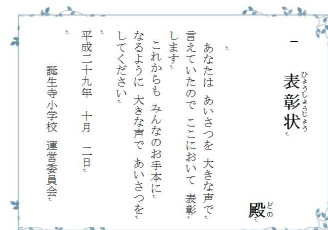 表彰状
ひょうしょうじょう
殿
どの
あなたは あいさつを 大きな声で
言えていたので ここにおいて 表彰
します
これからも みんなのお手本に
なるように 大きな声で あいさつを
してください
平成二十九年 十月 二日
誕生寺小学校 運営委員会